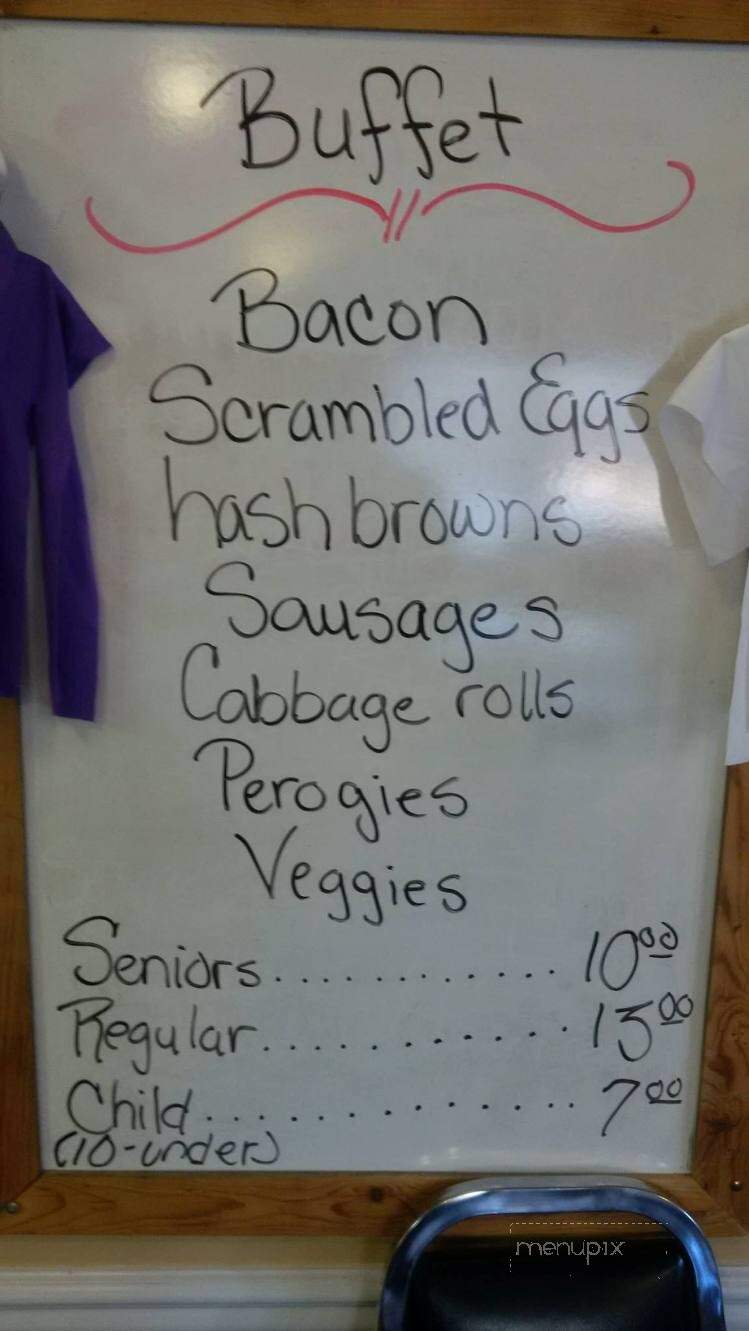 Buffet
Bacon
Scrambled Eggs
hash browns
Sausages
Cabbage rolls
Perogies
Veggies
Seniors............10.00
Regular............13.00
Child..............7.00
(10-under)
menupix